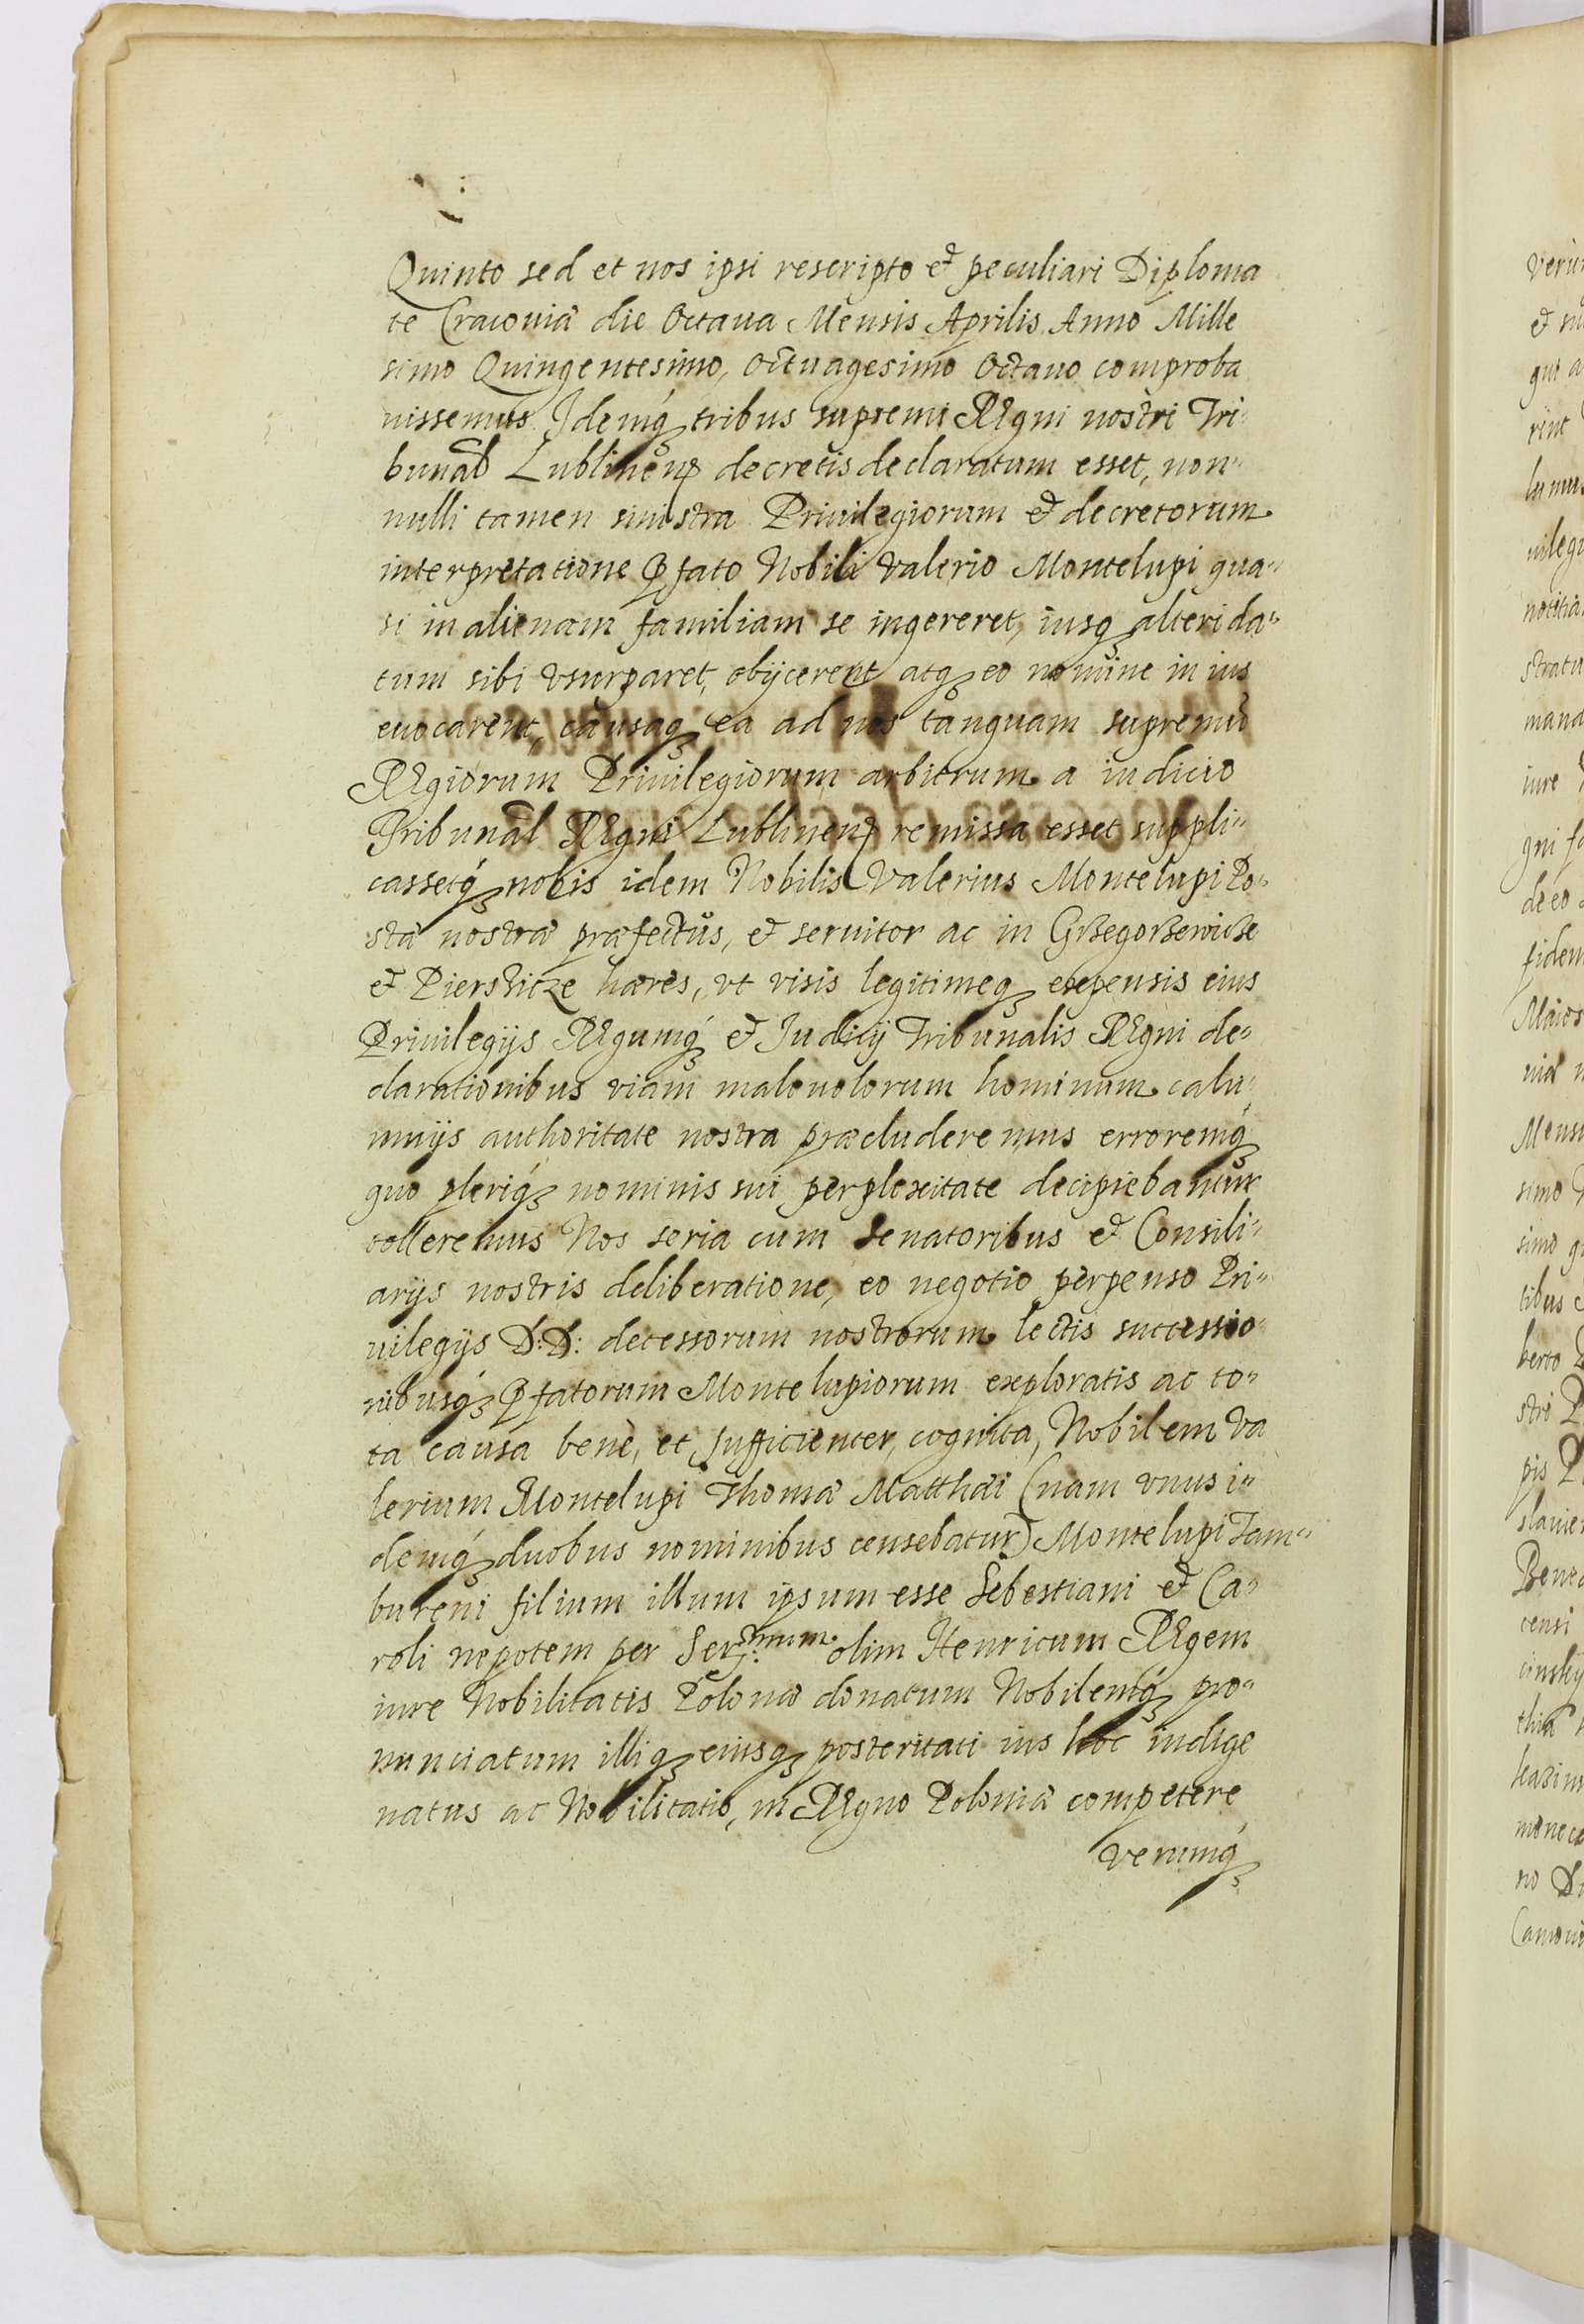 Quinto sed et nos ipsi rescripto et peculiari Diploma
te Cracouiæ die Octaua Mensis Aprilis Anno Mille
simo Quingentesimo, Octuagesimo Octauo comproba
uissemus Idemq́ꝫ tribus supremi Regni nostri Tri-
bunal Lublinen decretis declaratum esset, non-
nulli tamen sinistra Priuilegiorum et decretorum
interpretatione Pfato Nobili Valerio Montelupi qua-
si in alienam familiam se ingereret, iusqꝫ alteri da-
tum sibi vsurparet, obijcerent atqꝫ eo nomine in ius
euocarent, causaqꝫ ea ad nos tanquam supremũ
Regiorum Priuilegiorum arbitrum a iudicio
Tribunal Regni Lublinen remissa esset suppli-
cassetq́ꝫ nobis idem Nobilis Valerius Montelupi Po-
stæ nostræ præfectus, et seruitor ac in Grzegorzewicze
et Pierszicze hæres, vt visis legitimeqꝫ expensis eius
Priuilegijs Regumq́ꝫ et Iudicij Tribunalis Regni de-
clarationibus viam maleuolorum hominum calu-
mnijs authoritate nostra præcluderemus erroremq́ꝫ
quo pleriq́ꝫ nominis sui perplexitate decipiebantur
tolleremus Nos seria cum Senatoribus et Consili-
arijs nostris deliberatione, eo negotio perpenso Pri-
uilegijs D:D: decessorum nostrorum lectis successio-
nibusq́ꝫ Pfatorum Montelupiorum exploratis ac to-
ta causa bene, et sufficienter, cognita, Nobilem Va
lerium Montelupi Thomæ Matthæi (nam vnus i-
demq́ꝫ duobus nominibus censebatur) Montelupi Tam-
bureni filium illum ipsum esse Sebestiani et Ca-
roli nepotem per Ser:mum olim Henricum Regem
iure Nobilitatis Polonæ donatum Nobilemq́ꝫ pro-
nunciatum illiqꝫ eiusqꝫ posteritati ius hoc indige
natus ac Nobilitatis, in Regno Poloniæ competere
verumq́ꝫ